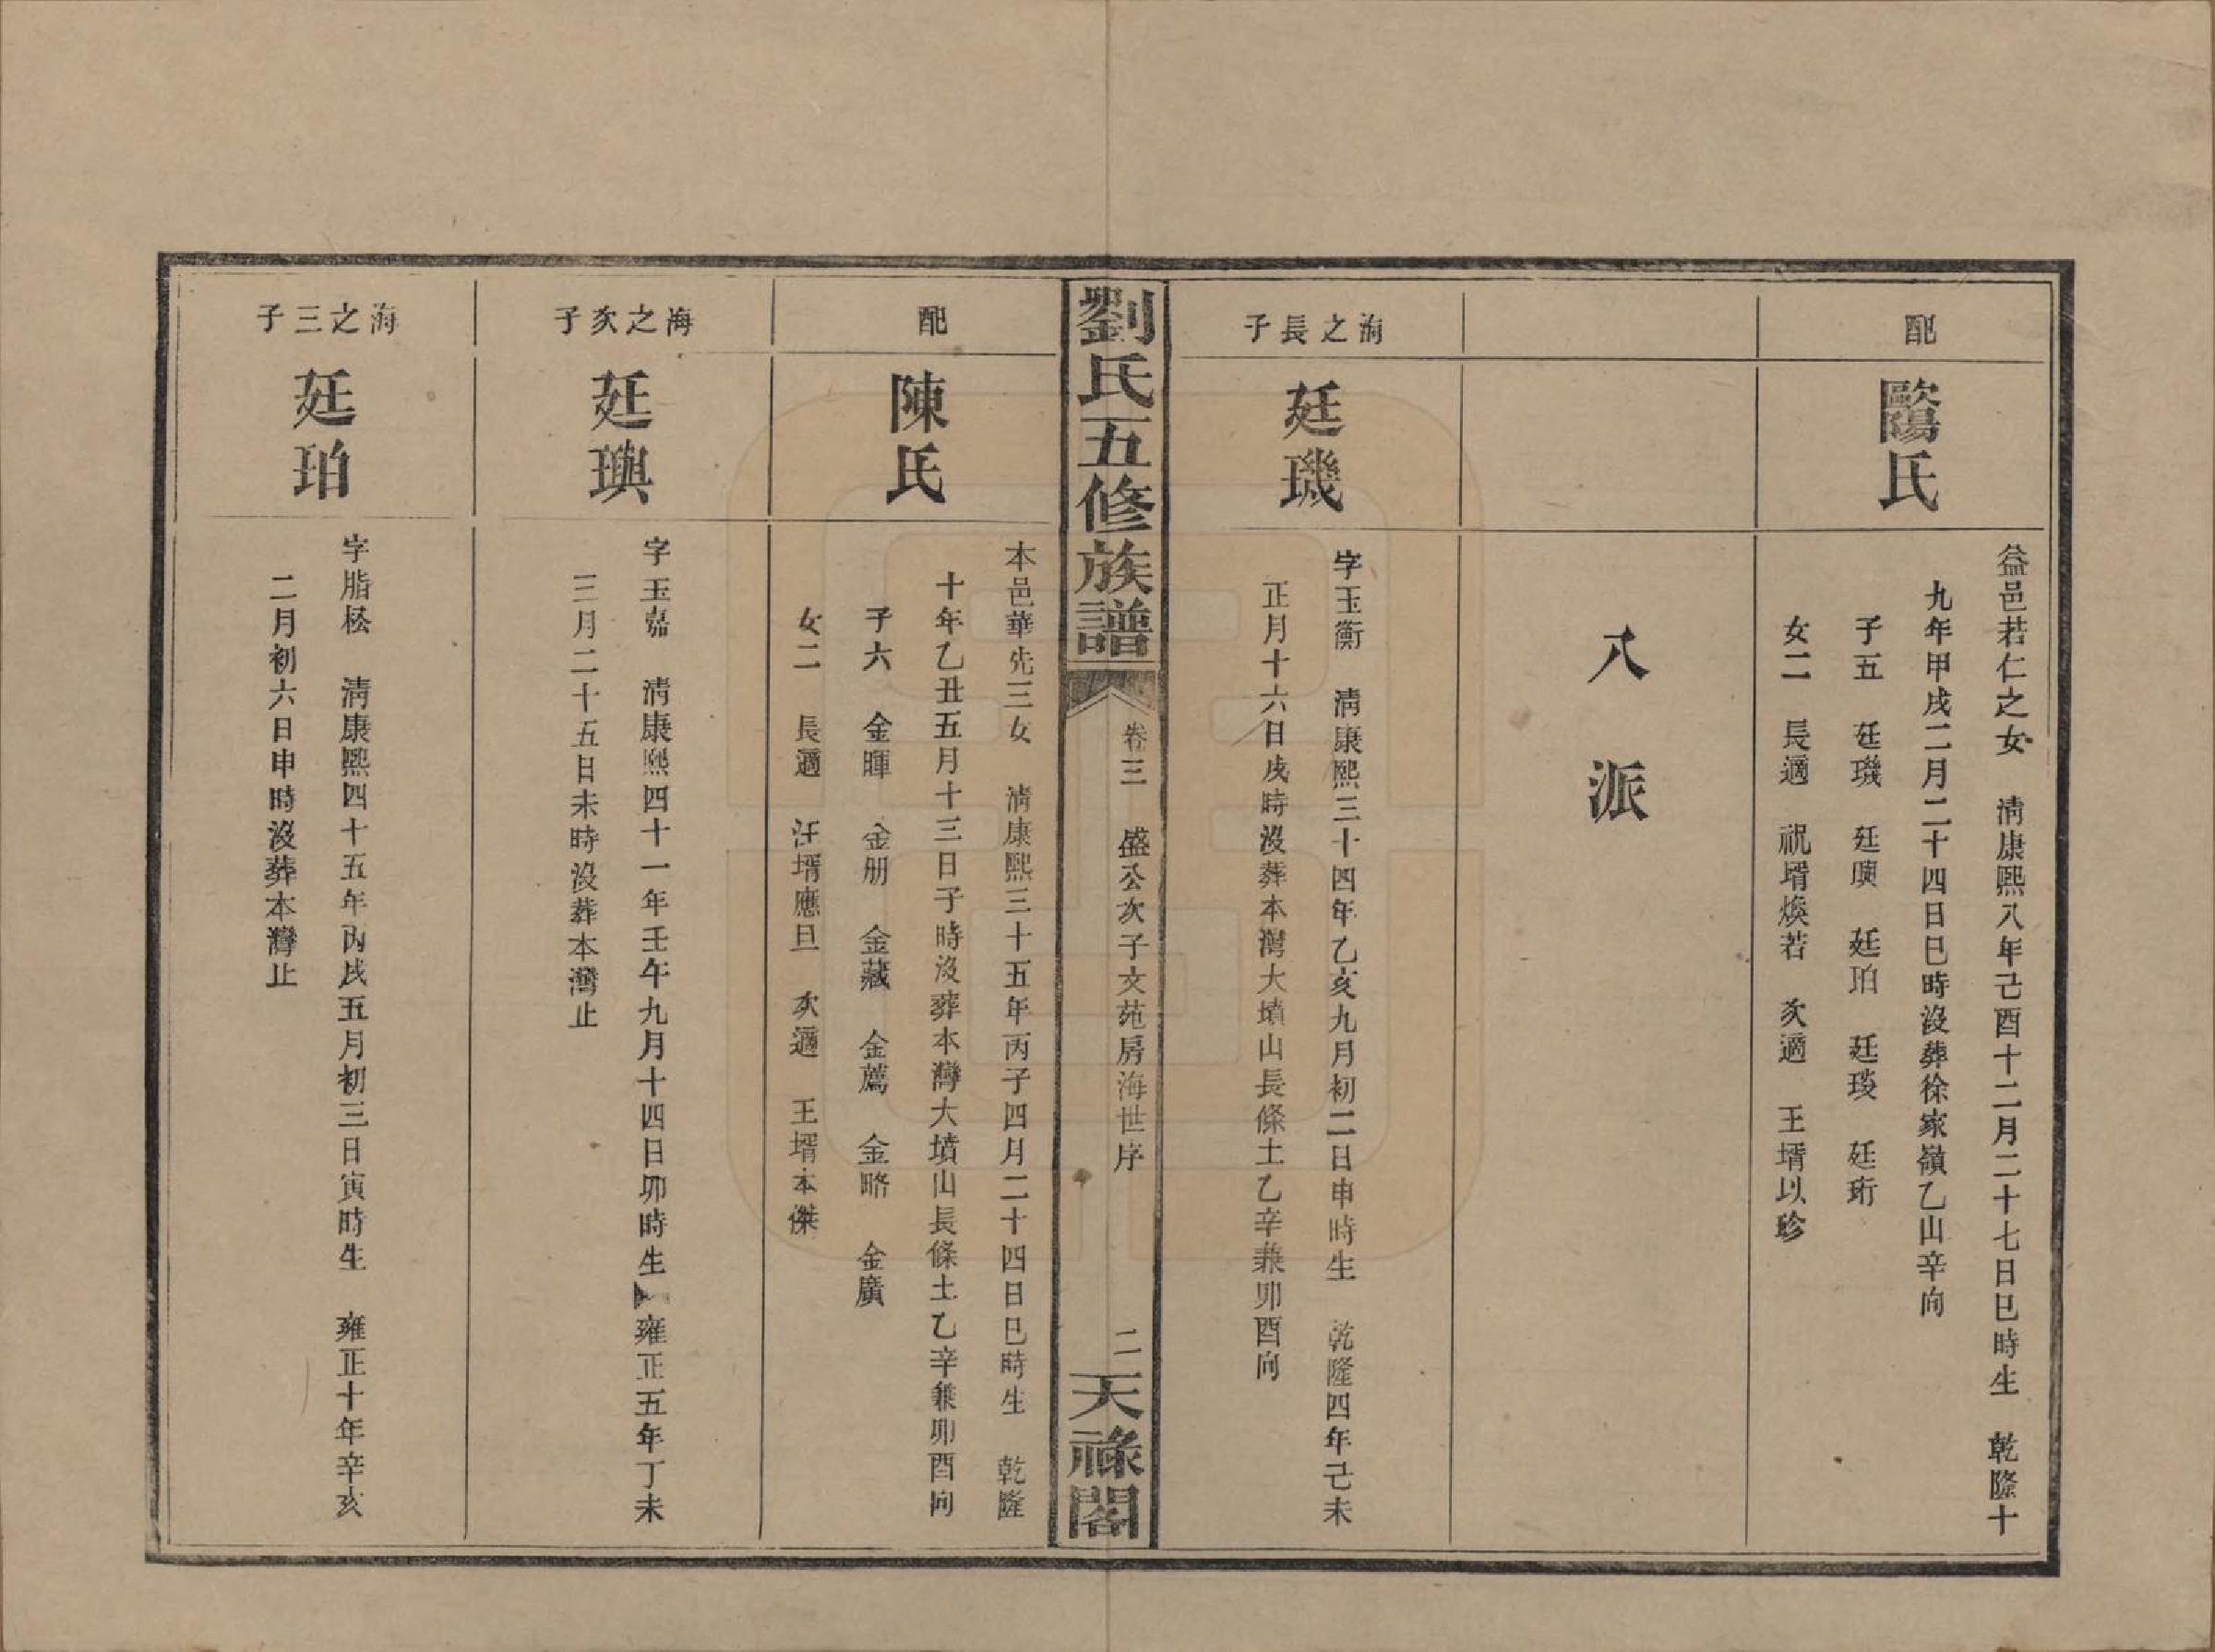 配
歐陽氏
益邑若仁之女　清康熙八年己酉十二月二十七日巳時生　乾隆十
九年甲戌二月二十四日巳時沒葬徐家嶺乙山辛向
子五　廷璣　廷璵　廷珀　廷琰　廷珩
女二　長適　祝壻煥若　次適　王壻以珍
八派
海之長子
廷璣
字玉衡　清康熙三十四年乙亥九月初二日申時生　乾隆四年己未
正月十六日戌時沒葬本灣大墳山長條土乙辛兼卯酉向
劉氏五修族譜
卷三　盛公次子文苑房海世序
二
天祿閣
配
陳氏
本邑華先三女　清康熙三十五年丙子四月二十四日巳時生　乾隆
十年乙丑五月十三日子時沒葬本灣大墳山長條土乙辛兼卯酉向
子六　金暉　金册　金藏　金薦　金略　金廣
女二　長適　汪壻應旦　次適　王壻本傑
海之次子
廷璵
字玉嘉　清康熙四十一年壬午九月十四日卯時生　雍正五年丁未
三月二十五日未時沒葬本灣止
海之三子
廷珀
字脂松　清康熙四十五年丙戌五月初三日寅時生　雍正十年辛亥
二月初六日申時沒葬本灣止